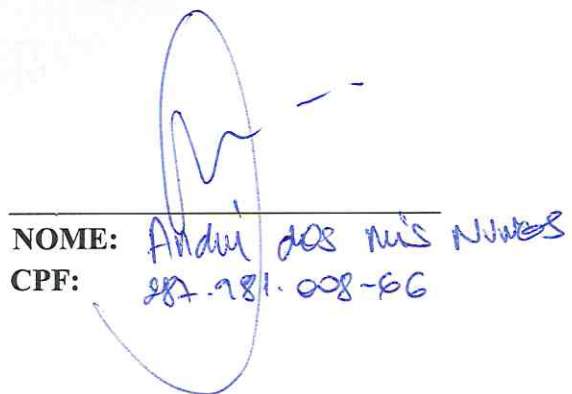 NOME: André dos Reis Nunes
CPF: 287.981.008-66